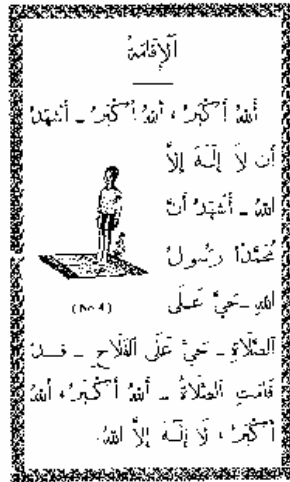 اَلْإِقَامَةُ
اَللّٰهُ أَكْبَرُ ، اَللّٰهُ أَكْبَرُ ـ أَشْهَدُ
أَن لاَّ إِلَـٰهَ إِلاَّ
اللهُ ـ أَشْهَدُ أَنَّ
مُحَمَّدًا رَسُولُ
اللهِ ـ حَيَّ عَـلَى
(No 4)
اَلصَّلَاةِ ـ حَيَّ عَلَى اَلْفَلَاحِ ـ قَـدْ
قَامَتِ اَلصَّلَاةُ ـ اَللهُ أَكْـبَرُ ، اَللهُ
أَكْبَرُ ، لَا إِلَـٰهَ إِلاَّ اللهُ.